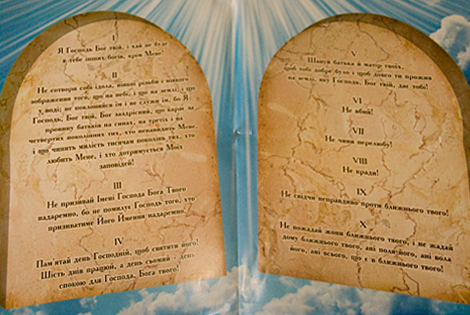 I
Я Господь Бог твій, і хай не буде
в тебе інших богів, крім Мене!
II
Не сотвори собі ідола, ніякої різьби і ніякого
зображення того, що на небі, і що на землі, і що
у воді; не поклоняйся їм і не служи їм, бо Я
Господь, Бог твій, Бог заздрісний, що карає за
провину батьків на синах, на третіх і на
четвертих поколіннях тих, хто ненавидить Мене,
і що чинить милість тисячам поколінь тих, хто
любить Мене, і хто дотримується Моїх
заповідей!
III
Не призивай Імені Господа Бога Твого
надаремно, бо не помилує Господь того, хто
призиватиме Його Ймення надаремно.
IV
Пам'ятай день Господній, щоб святити його!
Шість днів працюй, а день сьомий - день
спокою для Господа, Бога твого.
V
Шануй батька й матір твоїх,
щоб тобі добре було і щоб довго ти прожив
на землі, яку Господь, Бог твій, дає тобі!
VI
Не вбий!
VII
Не чини перелюбу!
VIII
Не кради!
IX
Не свідчи неправдиво проти ближнього твого!
X
Не пожадай жони ближнього твого, і не жадай
дому ближнього твого, ані поля його, ані вола
його, ані всього, що є в ближнього твого!